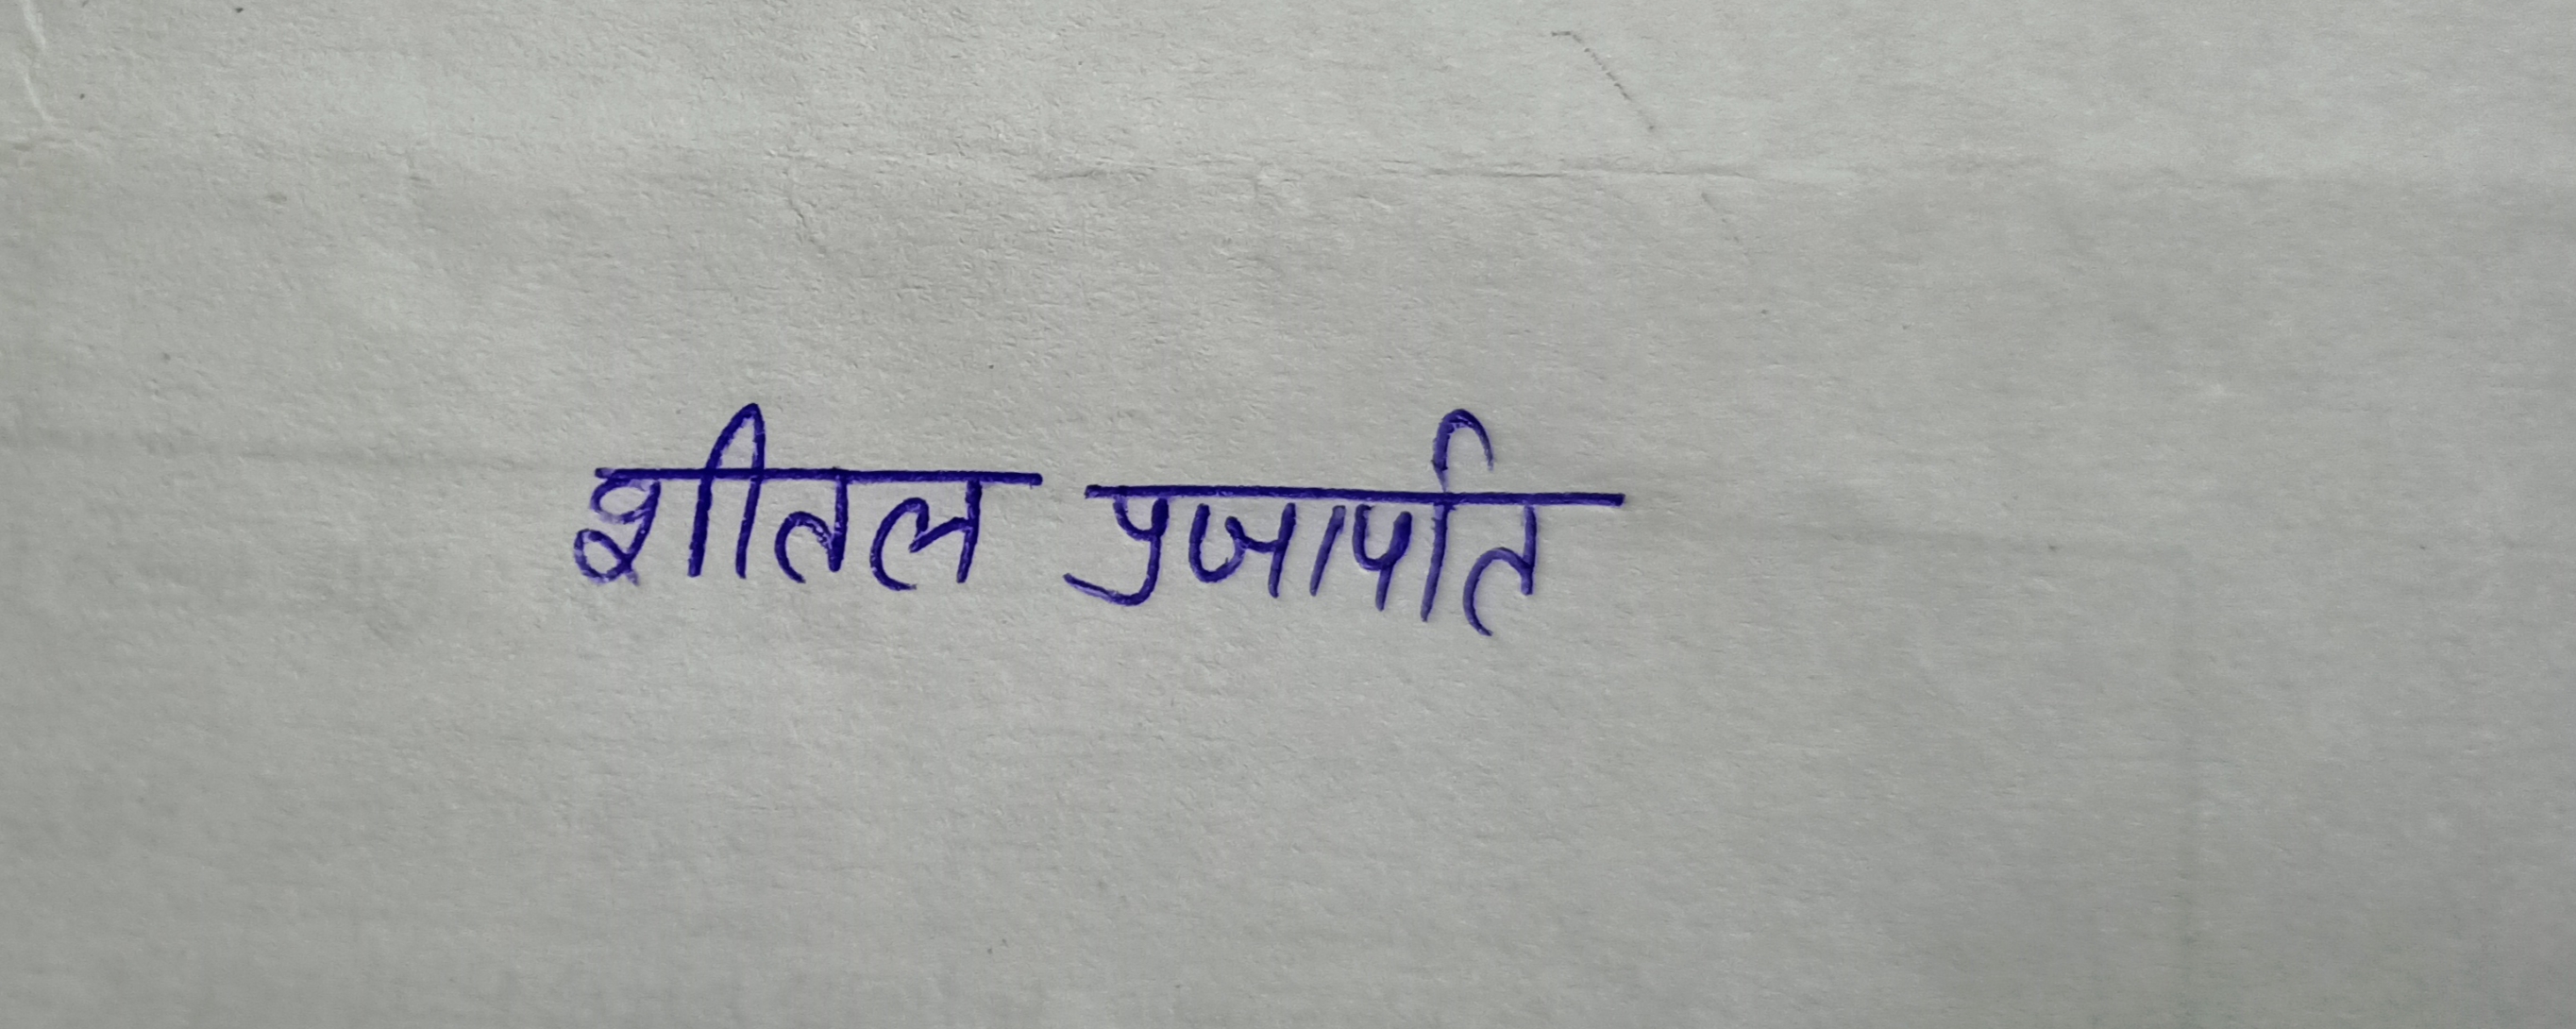 शीतल प्रजापति